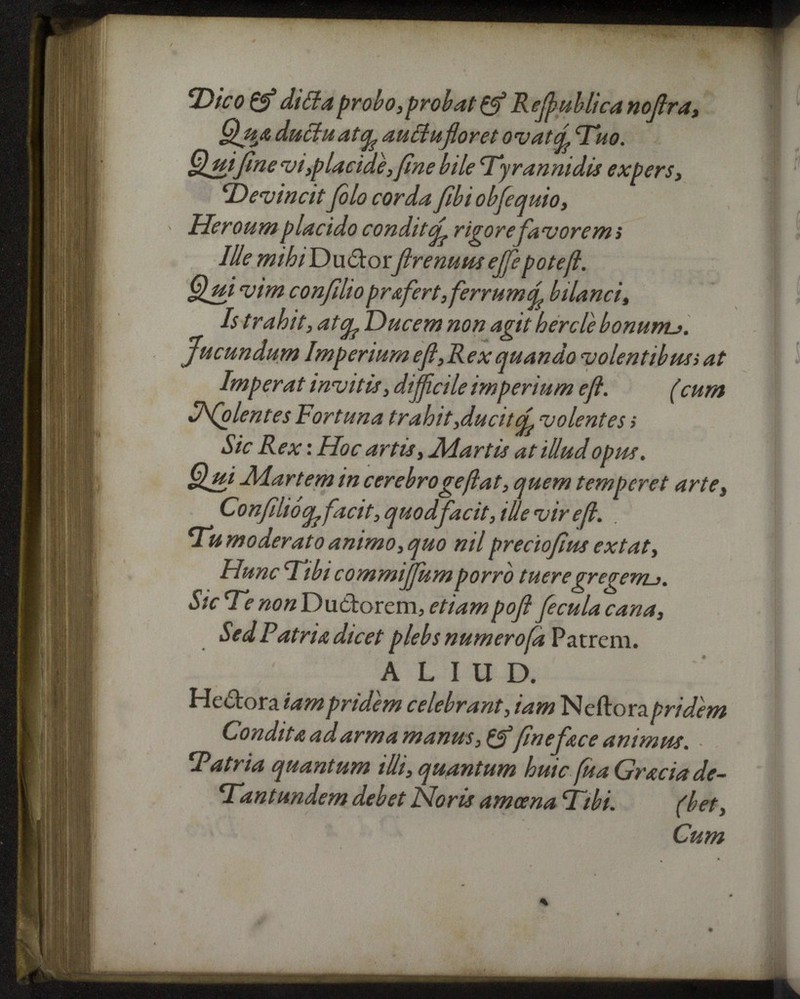 Dico & dicta probo, probat & Reſpublica noſtra,
Quæ ductu atq; auctu floret ovatq; Tuo.
Qui ſine vi, placidè, ſine bile Tyrannidis expers,
Devincit ſolo corda ſibi obſequio,
Heroum placido conditq; rigore favorem;
Ille mihi Ductor ſtrenuus eſſe poteſt.
Qui vim conſilio præfert, ferrumq; bilanci,
Is trahit, atq; Ducem non agit herclè bonum.
Jucundum Imperium eſt, Rex quando volentibus; at
Imperat invitis, difficile imperium eſt. (cum
Nolentes Fortuna trahit, ducitq; volentes;
Sic Rex: Hoc artis, Martis at illud opus.
Qui Martem in cerebro geſtat, quem temperet arte,
Conſilióq; facit, quod facit, ille vir eſt.
Tu moderato animo, quo nil precioſius extat,
Hunc Tibi commiſſum porrò tuere gregem.
Sic Te non Ductorem, etiam poſt ſecula cana,
Sed Patriæ dicet plebs numeroſa Patrem.
ALIUD.
Hectora iam pridèm celebrant, iam Neſtora pridèm
Condita ad arma manus, & ſine face animus.
Patria quantum illi, quantum huic ſua Græcia de-
Tantundem debet Noris amœna Tibi. (bet,
Cum